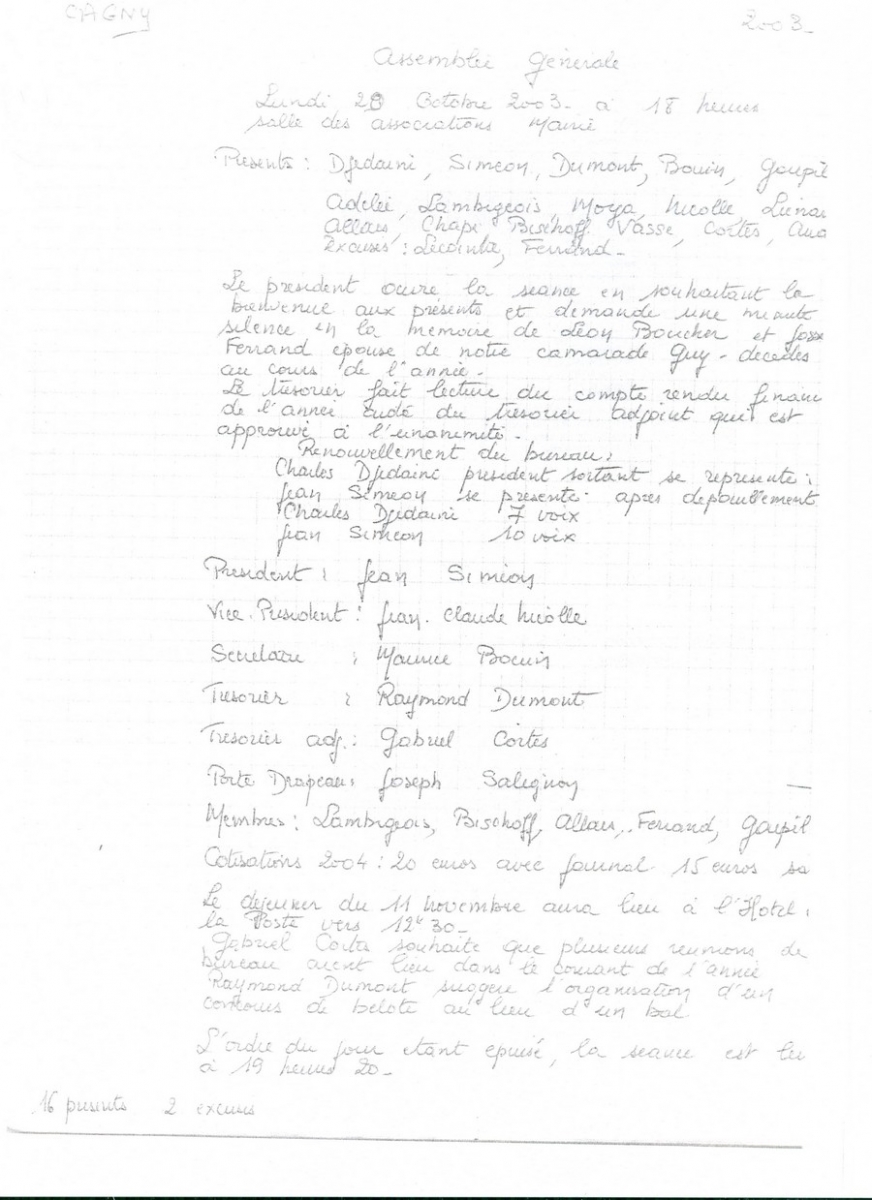 CAGNY
2003-
Assemblée Générale
Lundi 28 Octobre 2003- à 18 heures
salle des associations Mairie
Présents : Djedaini, Siméon, Dumont, Bouin, Goupil
Adelée, Lambigeois, Moya, Nicolle, Liénar
Allais, Chapi Bischoff Vasse, Cortès, Ana
Excusés : Lecointe, Ferrand-
Le président ouvre la séance en souhaitant la
bienvenue aux présents et demande une minute
silence en la mémoire de Léon Boucher et
Ferrand épouse de notre camarade Guy - décédés
au cours de l'année-
Le trésorier fait lecture du compte rendu financ
de l'année aidé du trésorier adjoint qui est
approuvé à l'unanimité-
Renouvellement du bureau:
Charles Djedaini président sortant se représente:
Jean Siméon se présente. après dépouillement
Charles Djedaini 7 voix
Jean Siméon 10 voix
Président : Jean Siméon
Vice-Président : Jean-Claude Nicolle
Secrétaire : Maurice Bouin
Trésorier : Raymond Dumont
Trésorier adj.: Gabriel Cortès
Porte Drapeau: Joseph Salegnon
Membres: Lambigeois, Bischoff, Allais, Ferrand, Goupil
Cotisations 2004 : 20 euros avec journal 15 euros sa
Le déjeuner du 11 novembre aura lieu à l'Hotel
la Poste vers 12h30-
Gabriel Corta souhaite que plusieurs réunions de
bureau aient lieu dans le courant de l'année
Raymond Dumont suggère l'organisation d'un
concours de belote au lieu d'un bal
L'ordre du jour étant épuisé, la séance est le
à 19 heures 20-
16 présents 2 excusés